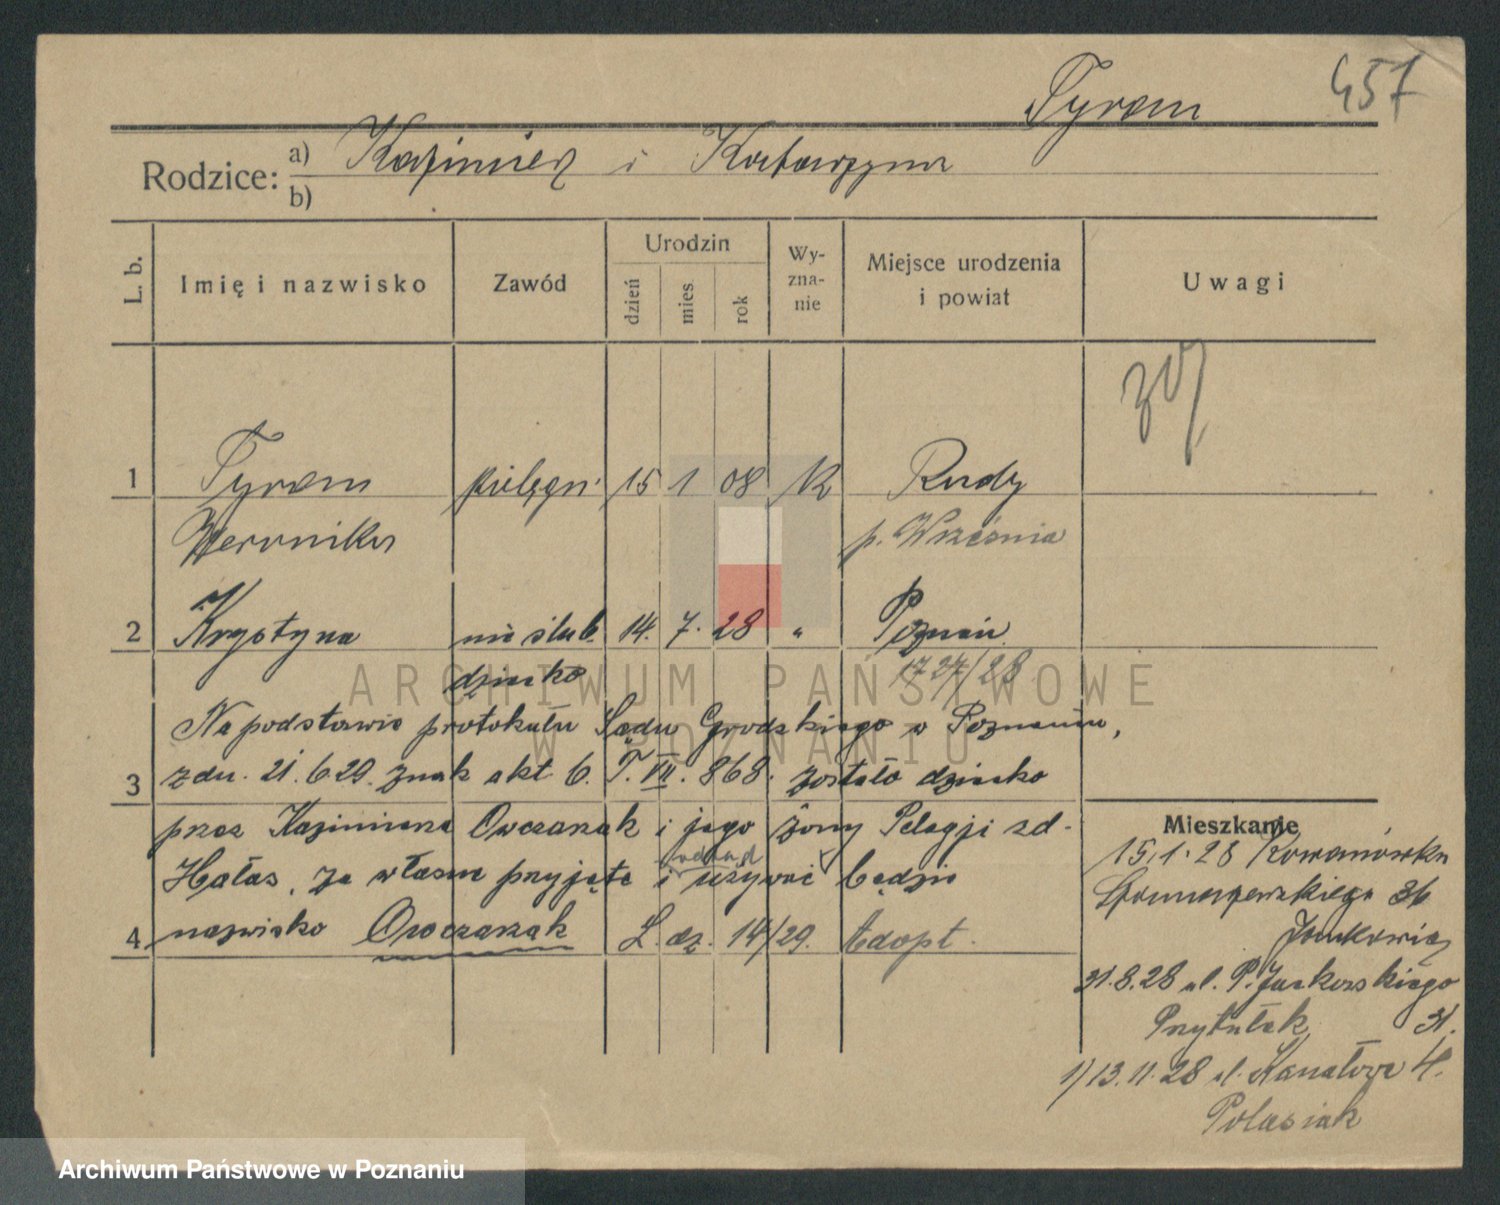 457
Tyram
Rodzice: a) Kazimierz i Katarzyna
b)
L. b.
Imię i nazwisko
Zawód
Urodzin
dzień
mies
rok
Wy-
zna-
nie
Miejsce urodzenia
i powiat
Uwagi
1 Tyram pielęgn. 15 1 08 K Rudy
Weronika p. Września
2 Krystyna nie ślub. 14. 7. 28 " Poznań
dziecko 1727/28
Na podstawie protokułu Sądu Grodzkiego w Poznaniu,
3 z dn. 21.6.29. znak akt 6. T. VII. 868. zostało dziecko
przez Kazimierza Owczarzak i jego żony Pelagji zd-
Hałas, za własne przyjęte i używać będzie
4 nazwisko Owczarzak L. dz. 14/29. Adopt.
Mieszkanie
15.1.28 Kowanówka
36
Jankowiaz
31.8.28 ul. P. Jackowskiego
Przytułek 31.
1) 13.11.28 ul. Kanałowa 4.
Polasiak
ARCHIWUM PAŃSTWOWE
W POZNANIU
Archiwum Państwowe w Poznaniu